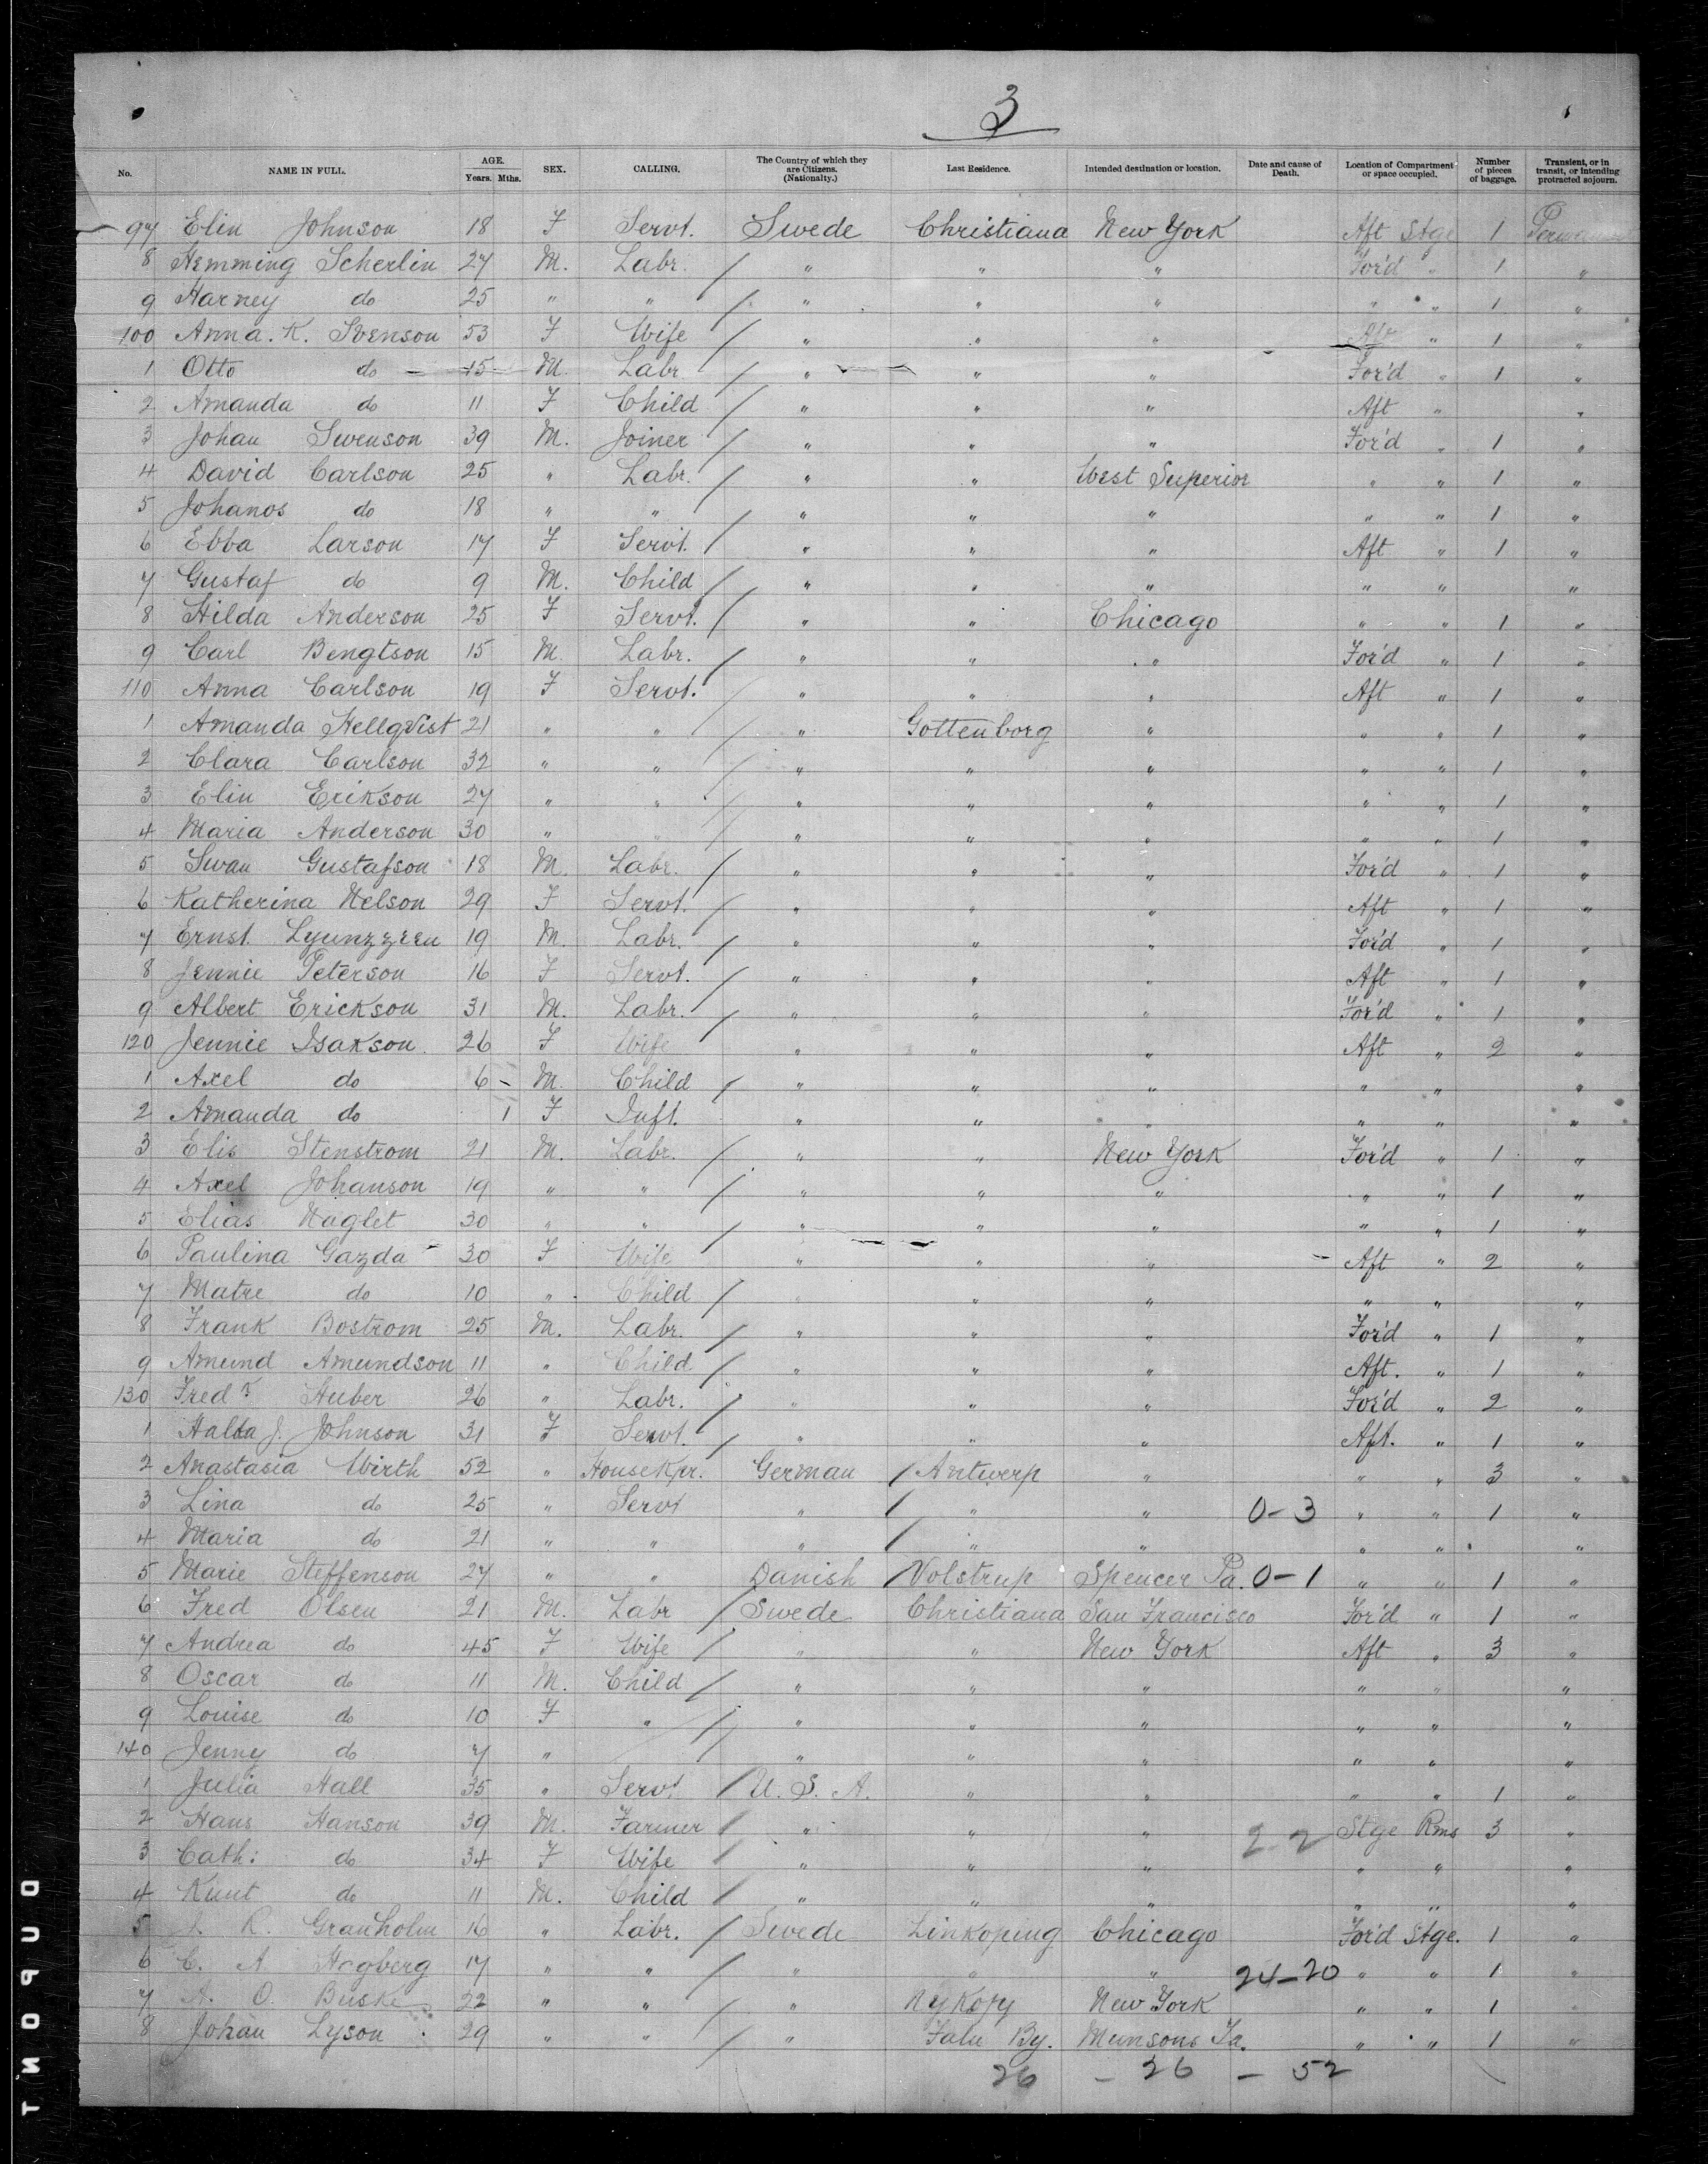 3
No. NAME IN FULL. AGE. Years. Mths. SEX. CALLING. The Country of which they are Citizens. (Nationalty.) Last Residence. Intended destination or location. Date and cause of Death. Location of Compartment or space occupied. Number of pieces of baggage. Transient, or in transit, or intending protracted sojourn.
97 Elin Johnson 18 F Servt. Swede Christiana New York Aft Stge 1
8 Hemming Scherlin 27 M. Labr. / " " " For'd " 1 "
9 Harney do 25 " " / " " " " " 1 "
100 Anna. K. Svenson 53 F Wife / " " " " 1 "
1 Otto do 15 M. Labr / " " " For'd " 1 "
2 Amanda do 11 F Child / " " " Aft " "
3 Johan Swenson 39 M. Joiner / " " " For'd " 1 "
4 David Carlson 25 " Labr. / " " West Superior " " 1 "
5 Johanos do 18 " " / " " " " " 1 "
6 Ebba Larson 17 F Servt. / " " " Aft " 1 "
7 Gustaf do 9 M. Child / " " " " " "
8 Hilda Anderson 25 F Servt. / " " Chicago " " 1 "
9 Carl Bengtson 15 M. Labr. / " " " For'd " 1 "
110 Anna Carlson 19 F Servt. / " " " Aft " 1 "
1 Amanda Hellqvist 21 " " / " Gottenborg " " " 1 "
2 Clara Carlson 32 " " / " " " " " 1 "
3 Elin Erikson 27 " " / " " " " " 1 "
4 Maria Anderson 30 " " / " " " " " 1 "
5 Swan Gustafson 18 M. Labr. / " " " For'd " 1 "
6 Katherina Nelson 29 F Servt. / " " " Aft " 1 "
7 Ernst. Lyunzzreu 19 M. Labr. / " " " For'd " 1 "
8 Jennie Peterson 16 F Servt. / " " " Aft " 1 "
9 Albert Erickson 31 M. Labr. / " " " For'd " 1 "
120 Jennie Isakson. 26 F Wife " " " Aft " 2 "
1 Axel do 6 - M. Child / " " " " " "
2 Amanda do 1 F Inft. " " " " " "
3 Elis Stenstrom 21 M. Labr. / " " New York For'd " 1 "
4 Axel Johanson 19 " " / " " " " " 1 "
5 Elias Naglet 30 " " / " " " " " 1 "
6 Paulina Gazda 30 F Wife " " " Aft " 2 "
7 Matre do 10 " Child / " " " " " "
8 Frank Bostrom 25 M. Labr. / " " " For'd " 1 "
9 Amund Amundson 11 " Child / " " " Aft. " 1 "
130 Fredk Huber 26 " Labr. / " " " For'd " 2 "
1 Halda J. Johnson 31 F Servt. / " " " Aft. " 1 "
2 Anastasia Wirth 52 " HouseKpr. German / Antwerp " " " 3 "
3 Lina do 25 " Servt " / " " 0-3 " " 1 "
4 Maria do 21 " " " / " " " " "
5 Marie Steffenson 27 " " Danish / Volstrup Spencer Pa. 0-1 " " 1 "
6 Fred Olsen 21 M. Labr / Swede Christiana San Francisco For'd " 1 "
7 Andrea do 45 F Wife / " " New York Aft " 3 "
8 Oscar do 11 M. Child / " " " " " "
9 Louise do 10 F " / " " " " " "
140 Jenny do 7 " / " " " " " "
1 Julia Hall 35 " Servt / U. S. A. " " " " 1 "
2 Hans Hanson 39 M. Farmer / " " " 2 2 Stge Rms 3 "
3 Cath: do 34 F Wife / " " " " " "
4 Knut do 11 M. Child / " " " " " "
5 R. Granholm 16 " Labr. / Swede Linkoping Chicago For'd Stge. 1 "
6 C. A. Hogberg 17 " " / " " " 24-20 " " 1 "
7 A. O. Buske 22 " " / " NyKopy New York " " 1 "
8 Johan Lyson 29 " " / " Falu By. Munsons " " 1 "
26 - 26 - 52
TUOPUO